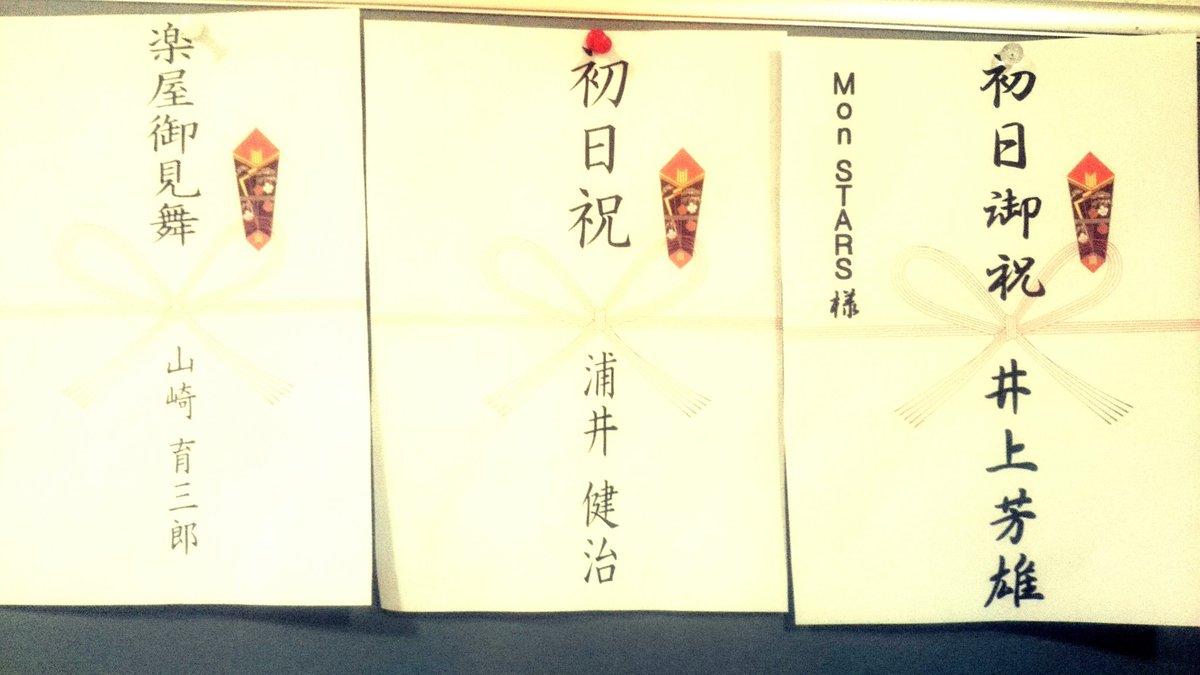 Mon STARS 様
初日御祝
井上芳雄
初日祝
浦井 健治
楽屋御見舞
山崎 育三郎